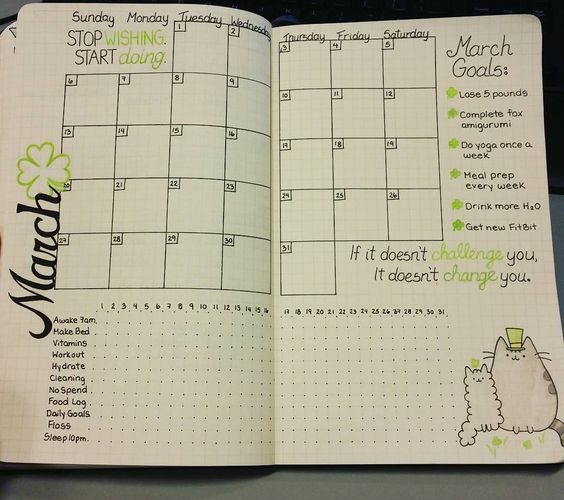 Sunday Monday Tuesday Wednesday Thursday Friday Saturday
STOP WISHING.
START doing.
1 2 3 4 5
6 7 8 9 10 11 12
13 14 15 16 17 18 19
20 21 22 23 24 25 26
27 28 29 30 31
March
March
Goals:
Lose 5 pounds
Complete fox
amigurumi
Do yoga once a
week
Meal prep
every week
Drink more H2O
Get new FitBit
If it doesn't challenge you,
It doesn't change you.
1 2 3 4 5 6 7 8 9 10 11 12 13 14 15 16 17 18 19 20 21 22 23 24 25 26 27 28 29 30 31
Awake 7am
Make Bed
Vitamins
Workout
Hydrate
Cleaning
No Spend
Food Log
Daily Goals
Floss
Sleep 10pm